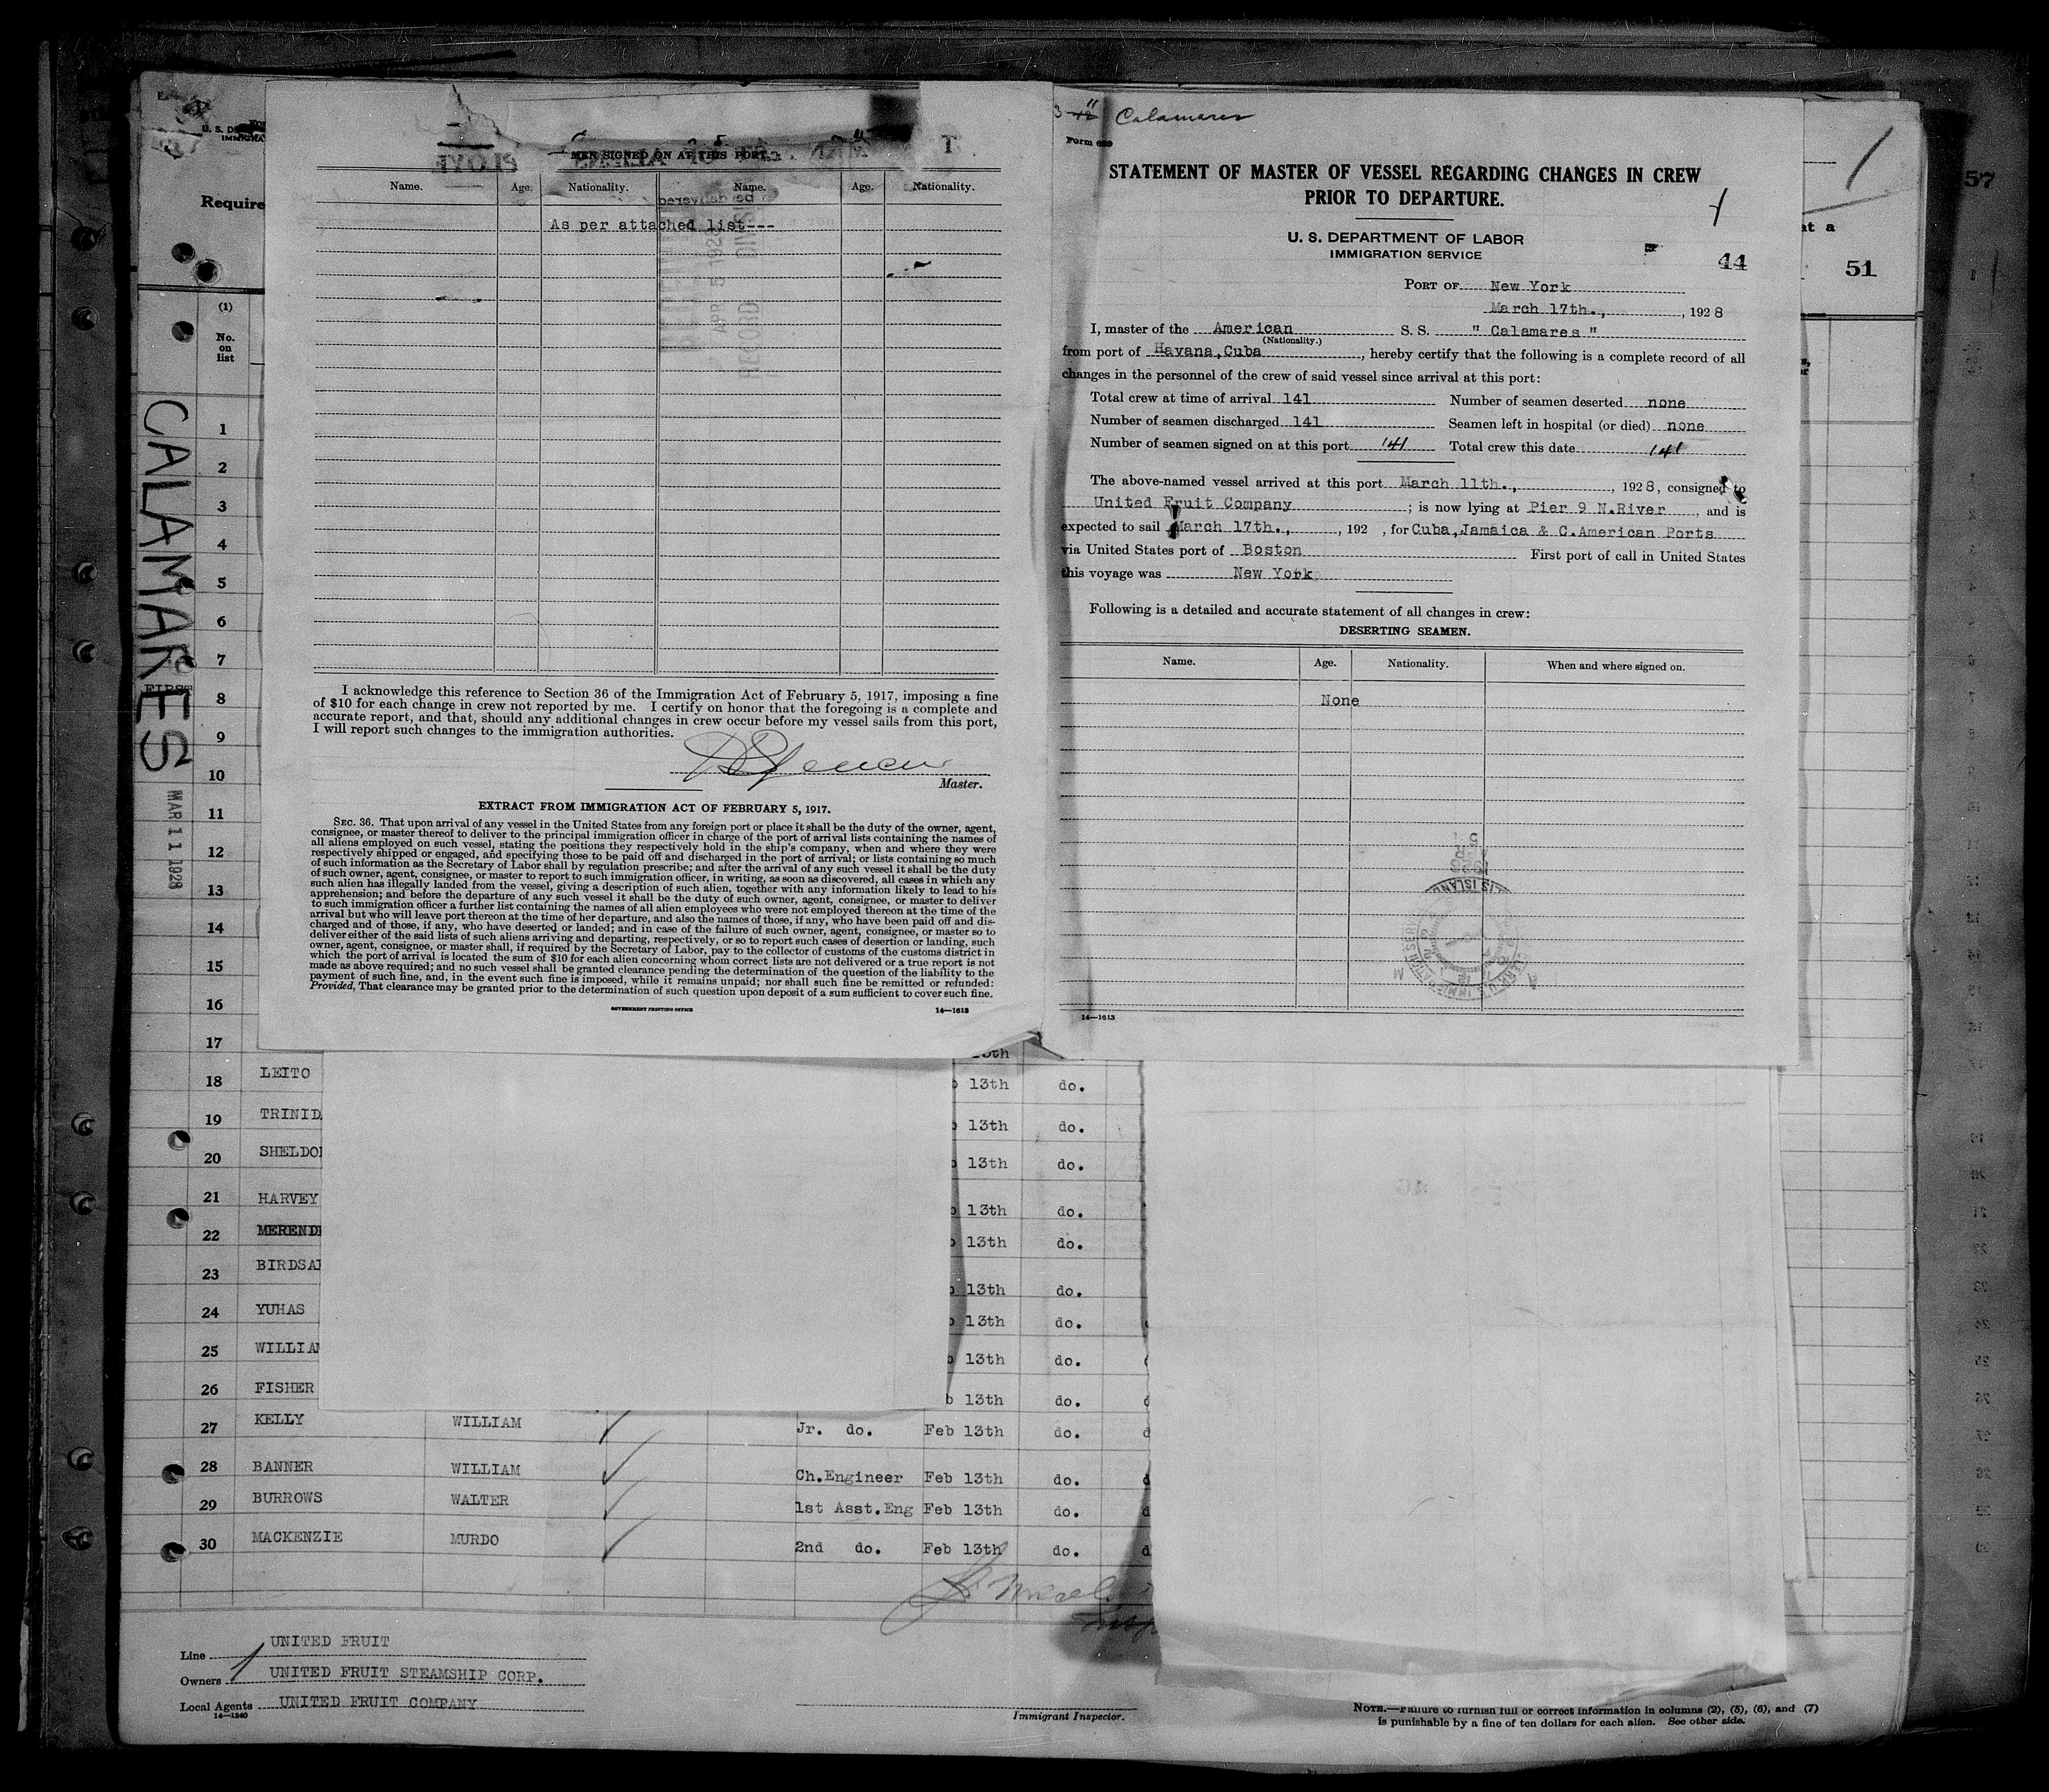 MEN SIGNED ON AT THIS PORT.
Name. Age. Nationality. Name. Age. Nationality.
be delivered
As per attached list---
APR 5 1928
RECORD DIVIS
I acknowledge this reference to Section 36 of the Immigration Act of February 5, 1917, imposing a fine
of $10 for each change in crew not reported by me. I certify on honor that the foregoing is a complete and
accurate report, and that, should any additional changes in crew occur before my vessel sails from this port,
I will report such changes to the immigration authorities.
Master.
EXTRACT FROM IMMIGRATION ACT OF FEBRUARY 5, 1917.
SEC. 36. That upon arrival of any vessel in the United States from any foreign port or place it shall be the duty of the owner, agent,
consignee, or master thereof to deliver to the principal immigration officer in charge of the port of arrival lists containing the names of
all aliens employed on such vessel, stating the positions they respectively hold in the ship's company, when and where they were
respectively shipped or engaged, and specifying those to be paid off and discharged in the port of arrival; or lists containing so much
of such information as the Secretary of Labor shall by regulation prescribe; and after the arrival of any such vessel it shall be the duty
of such owner, agent, consignee, or master to report to such immigration officer, in writing, as soon as discovered, all cases in which any
such alien has illegally landed from the vessel, giving a description of such alien, together with any information likely to lead to his
apprehension; and before the departure of any such vessel it shall be the duty of such owner, agent, consignee, or master to deliver
to such immigration officer a further list containing the names of all alien employees who were not employed thereon at the time of the
arrival but who will leave port thereon at the time of her departure, and also the names of those, if any, who have been paid off and dis-
charged and of those, if any, who have deserted or landed; and in case of the failure of such owner, agent, consignee, or master so to
deliver either of the said lists of such aliens arriving and departing, respectively, or so to report such cases of desertion or landing, such
owner, agent, consignee, or master shall, if required by the Secretary of Labor, pay to the collector of customs of the customs district in
which the port of arrival is located the sum of $10 for each alien concerning whom correct lists are not delivered or a true report is not
made as above required; and no such vessel shall be granted clearance pending the determination of the question of the liability to the
payment of such fine, and, in the event such fine is imposed, while it remains unpaid; nor shall such fine be remitted or refunded:
Provided, That clearance may be granted prior to the determination of such question upon deposit of a sum sufficient to cover such fine.
GOVERNMENT PRINTING OFFICE 14—1613
Calamares
Form 689
STATEMENT OF MASTER OF VESSEL REGARDING CHANGES IN CREW
PRIOR TO DEPARTURE.
U. S. DEPARTMENT OF LABOR
IMMIGRATION SERVICE
44
PORT OF New York
March 17th., , 1928
I, master of the American S. S. " Calamares "
(Nationality.)
from port of Havana,Cuba , hereby certify that the following is a complete record of all
changes in the personnel of the crew of said vessel since arrival at this port:
Total crew at time of arrival 141 Number of seamen deserted none
Number of seamen discharged 141 Seamen left in hospital (or died) none
Number of seamen signed on at this port 141 Total crew this date 141
The above-named vessel arrived at this port March 11th., , 1928, consigned to
United Fruit Company ; is now lying at Pier 9 N.River , and is
expected to sail March 17th., , 192 , for Cuba,Jamaica & C.American Ports
via United States port of Boston First port of call in United States
this voyage was New York
Following is a detailed and accurate statement of all changes in crew:
DESERTING SEAMEN.
Name. Age. Nationality. When and where signed on.
None
14—1613
57
at a
51
Require
(1)
No.
on
list
CALAMARES
MAR 11 1928
1
2
3
4
5
6
7
FIRST
8
9
10
11
12
13
14
15
16
17 13th
18 LEITO 13th do.
19 TRINID 13th do.
20 SHELDO 13th do.
21 HARVEY 13th do.
22 MEREND 13th do.
23 BIRDSA 13th do.
24 YUHAS 13th do.
25 WILLIA 13th do.
26 FISHER b 13th do.
27 KELLY WILLIAM Jr. do. Feb 13th do. d
28 BANNER WILLIAM Ch.Engineer Feb 13th do. d
29 BURROWS WALTER 1st Asst.Eng Feb 13th do. d
30 MACKENZIE MURDO 2nd do. Feb 13th do. d
Line UNITED FRUIT
Owners UNITED FRUIT STEAMSHIP CORP.
Local Agents UNITED FRUIT COMPANY
14—1240
Immigrant Inspector.
NOTE.—Failure to furnish full or correct information in columns (2), (5), (6), and (7)
is punishable by a fine of ten dollars for each alien. See other side.